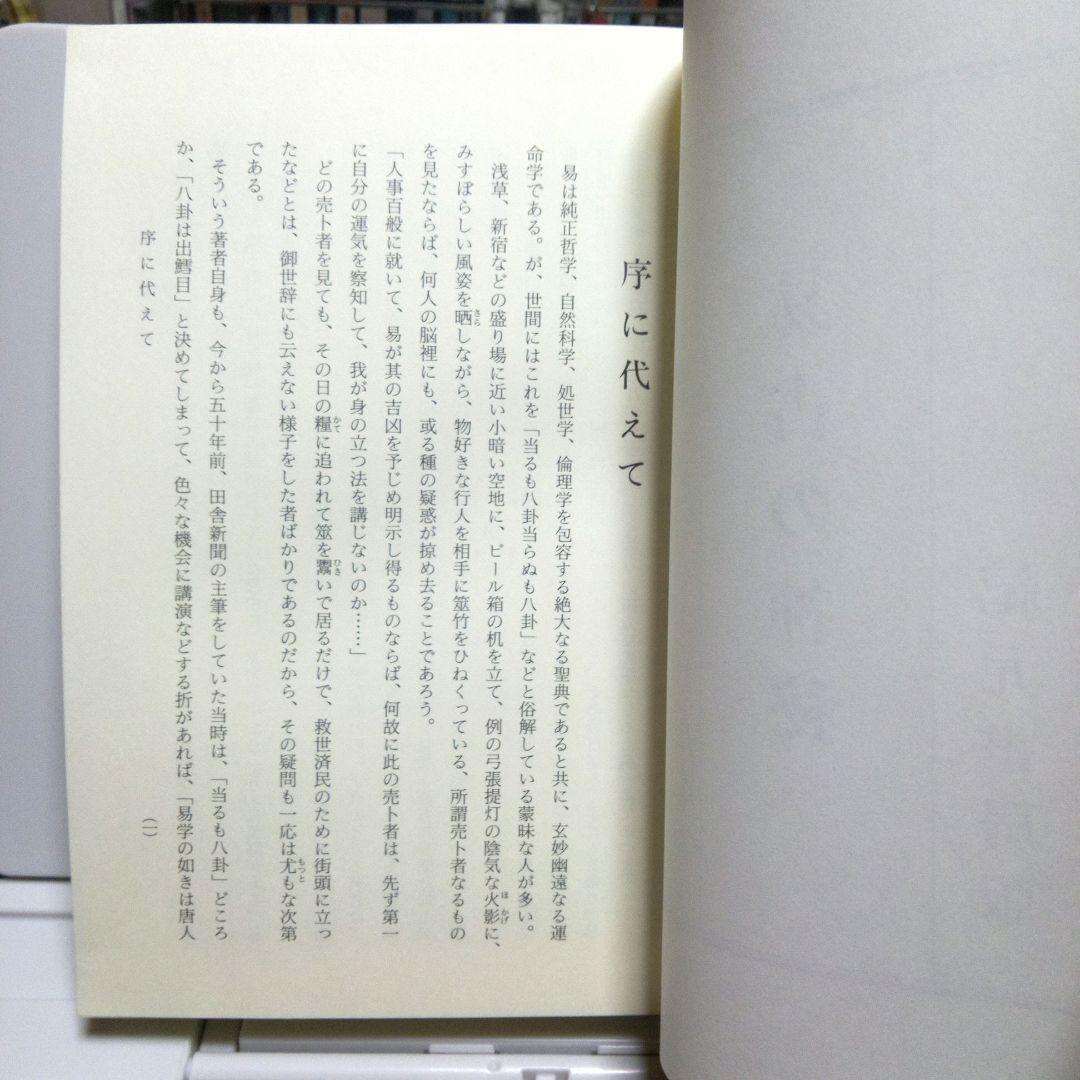 序に代えて
易は純正哲学、自然科学、処世学、倫理学を包容する絶大なる聖典であると共に、玄妙幽遠なる運
命学である。が、世間にはこれを「当るも八卦当らぬも八卦」などと俗解している蒙昧な人が多い。
浅草、新宿などの盛り場に近い小暗い空地に、ビール箱の机を立て、例の弓張提灯の陰気な火影に、
みすぼらしい風姿を晒しながら、物好きな行人を相手に筮竹をひねくっている、所謂売卜者なるもの
を見たならば、何人の脳裡にも、或る種の疑惑が掠め去ることであろう。
「人事百般に就いて、易が其の吉凶を予じめ明示し得るものならば、何故に此の売卜者は、先ず第一
に自分の運気を察知して、我が身の立つ法を講じないのか……」
どの売卜者を見ても、その日の糧に追われて筮を鬻いで居るだけで、救世済民のために街頭に立っ
たなどとは、御世辞にも云えない様子をした者ばかりであるのだから、その疑問も一応は尤もな次第
である。
そういう著者自身も、今から五十年前、田舎新聞の主筆をしていた当時は、「当るも八卦」どころ
か、「八卦は出鱈目」と決めてしまって、色々な機会に講演などする折があれば、「易学の如きは唐人
序に代えて
(一)